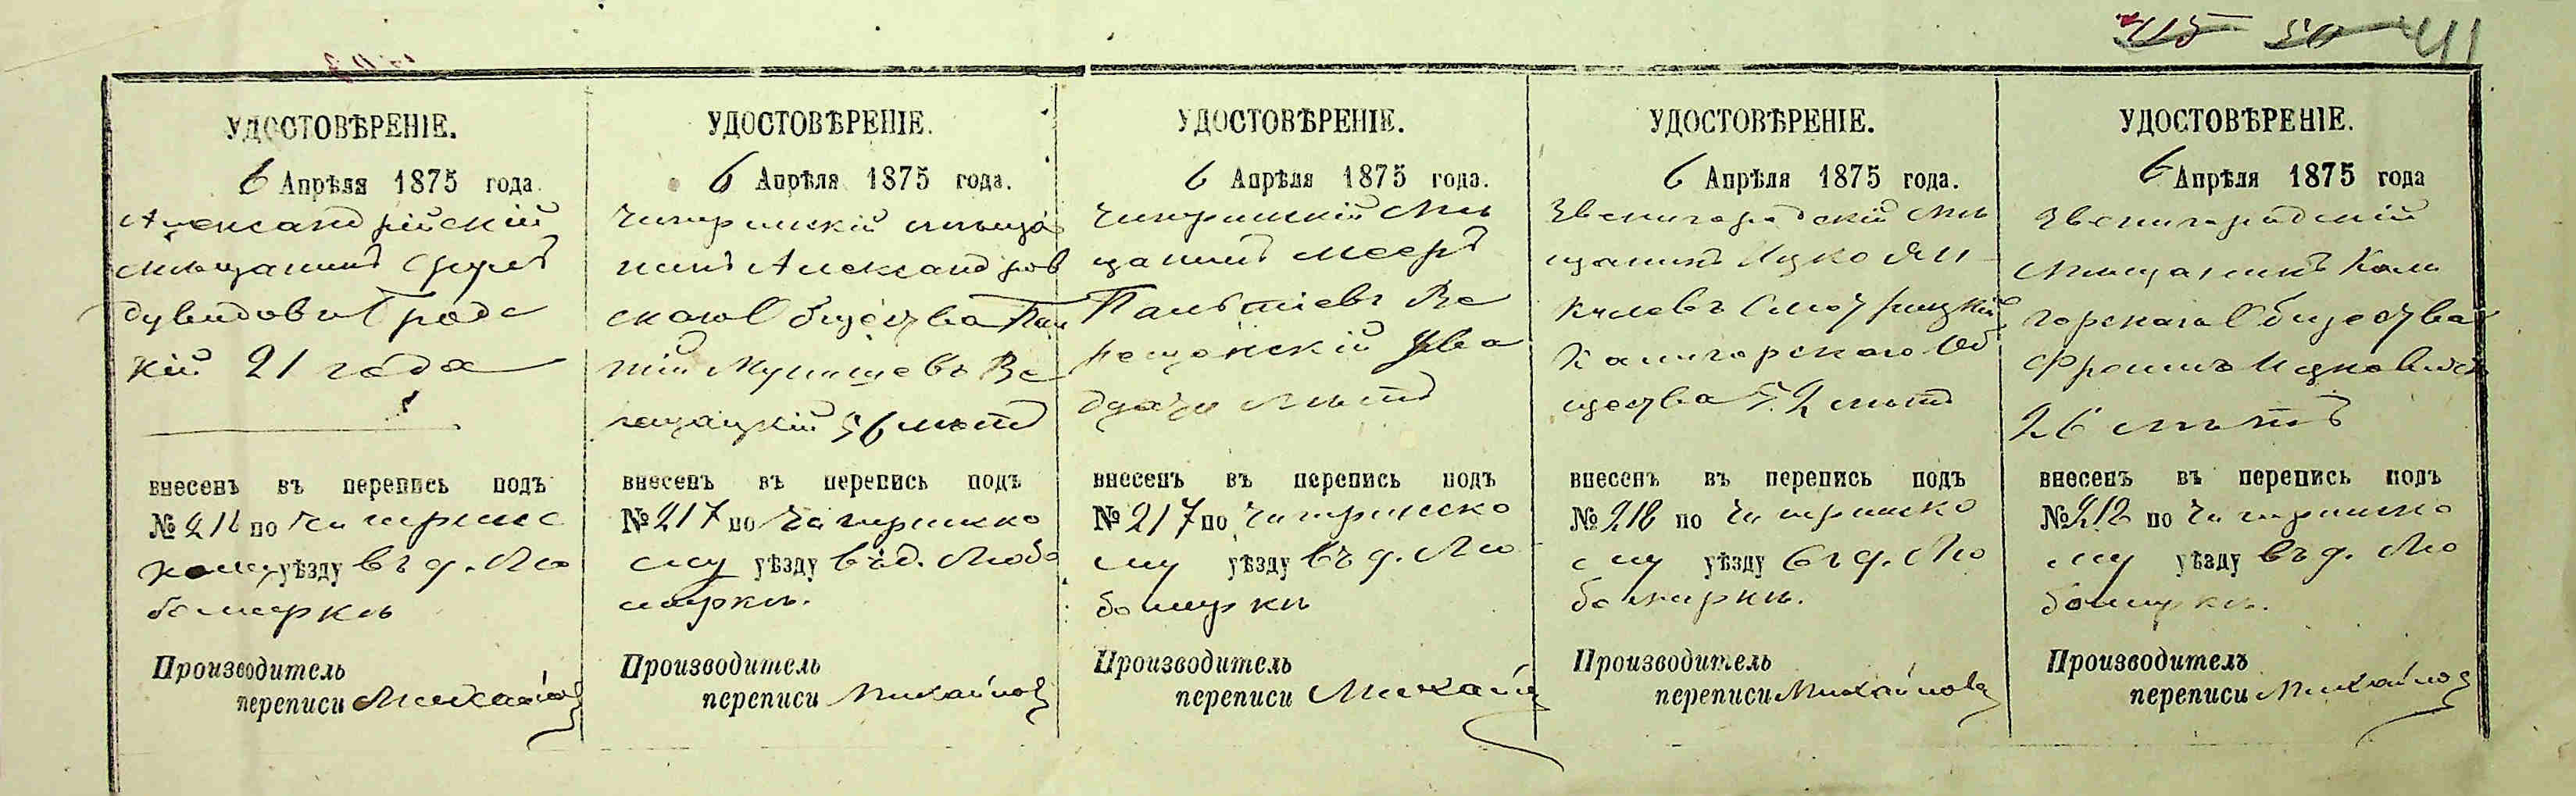 411
УДОСТОВѢРЕНІЕ.
6 Апрѣля 1875 года.
Александрійскій
мѣщанинъ Сруль
Дувидовъ Гродс
кій 21 года
внесенъ въ перепись подъ
№ 216 по Чигиринс
кому уѣзду въ д. Лю
бомирки
Производитель
переписи Михайлов
УДОСТОВѢРЕНІЕ.
6 Апрѣля 1875 года.
Чигиринскій мѣща
нинъ Александров
скаго Общества
тій Ве
рещацкій 56 лѣтъ
внесенъ въ перепись подъ
№ 217 по Чигиринско
му уѣзду въ д. Любо
мирки.
Производитель
переписи Михайлов
УДОСТОВѢРЕНІЕ.
6 Апрѣля 1875 года.
Чигиринскій Мѣ
щанинъ Мееръ
Ве
рещакскій Два
дцати лѣтъ
внесенъ въ перепись подъ
№ 217 по Чигиринско
му уѣзду въ д. Лю
бомирки
Производитель
переписи Михайл
УДОСТОВѢРЕНІЕ.
6 Апрѣля 1875 года.
Звенигородскій Мѣ
щанинъ Ицко Ян
Смотрицкій
Калигорскаго Об
щества 52 лѣтъ
внесенъ въ перепись подъ
№ 218 по Чигиринско
му уѣзду въ д. Лю
бомирки.
Производитель
переписи Михайлов
УДОСТОВѢРЕНІЕ.
6 Апрѣля 1875 года
Звенигородскій
Мѣщанинъ Кали
горскаго Общества
Фроимъ Ицковъ
26 лѣтъ
внесенъ въ перепись подъ
№ 218 по Чигиринско
му уѣзду въ д. Лю
бомирки.
Производитель
переписи Михайлов